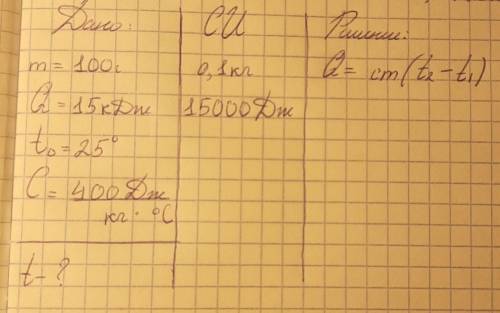 Дано:
m = 100г
Q = 15кДж
t₀ = 25°
C = 400 Дж
кг · °C
t - ?
СИ
0,1кг
15000Дж
Решение:
Q = cm(t₂ - t₁)